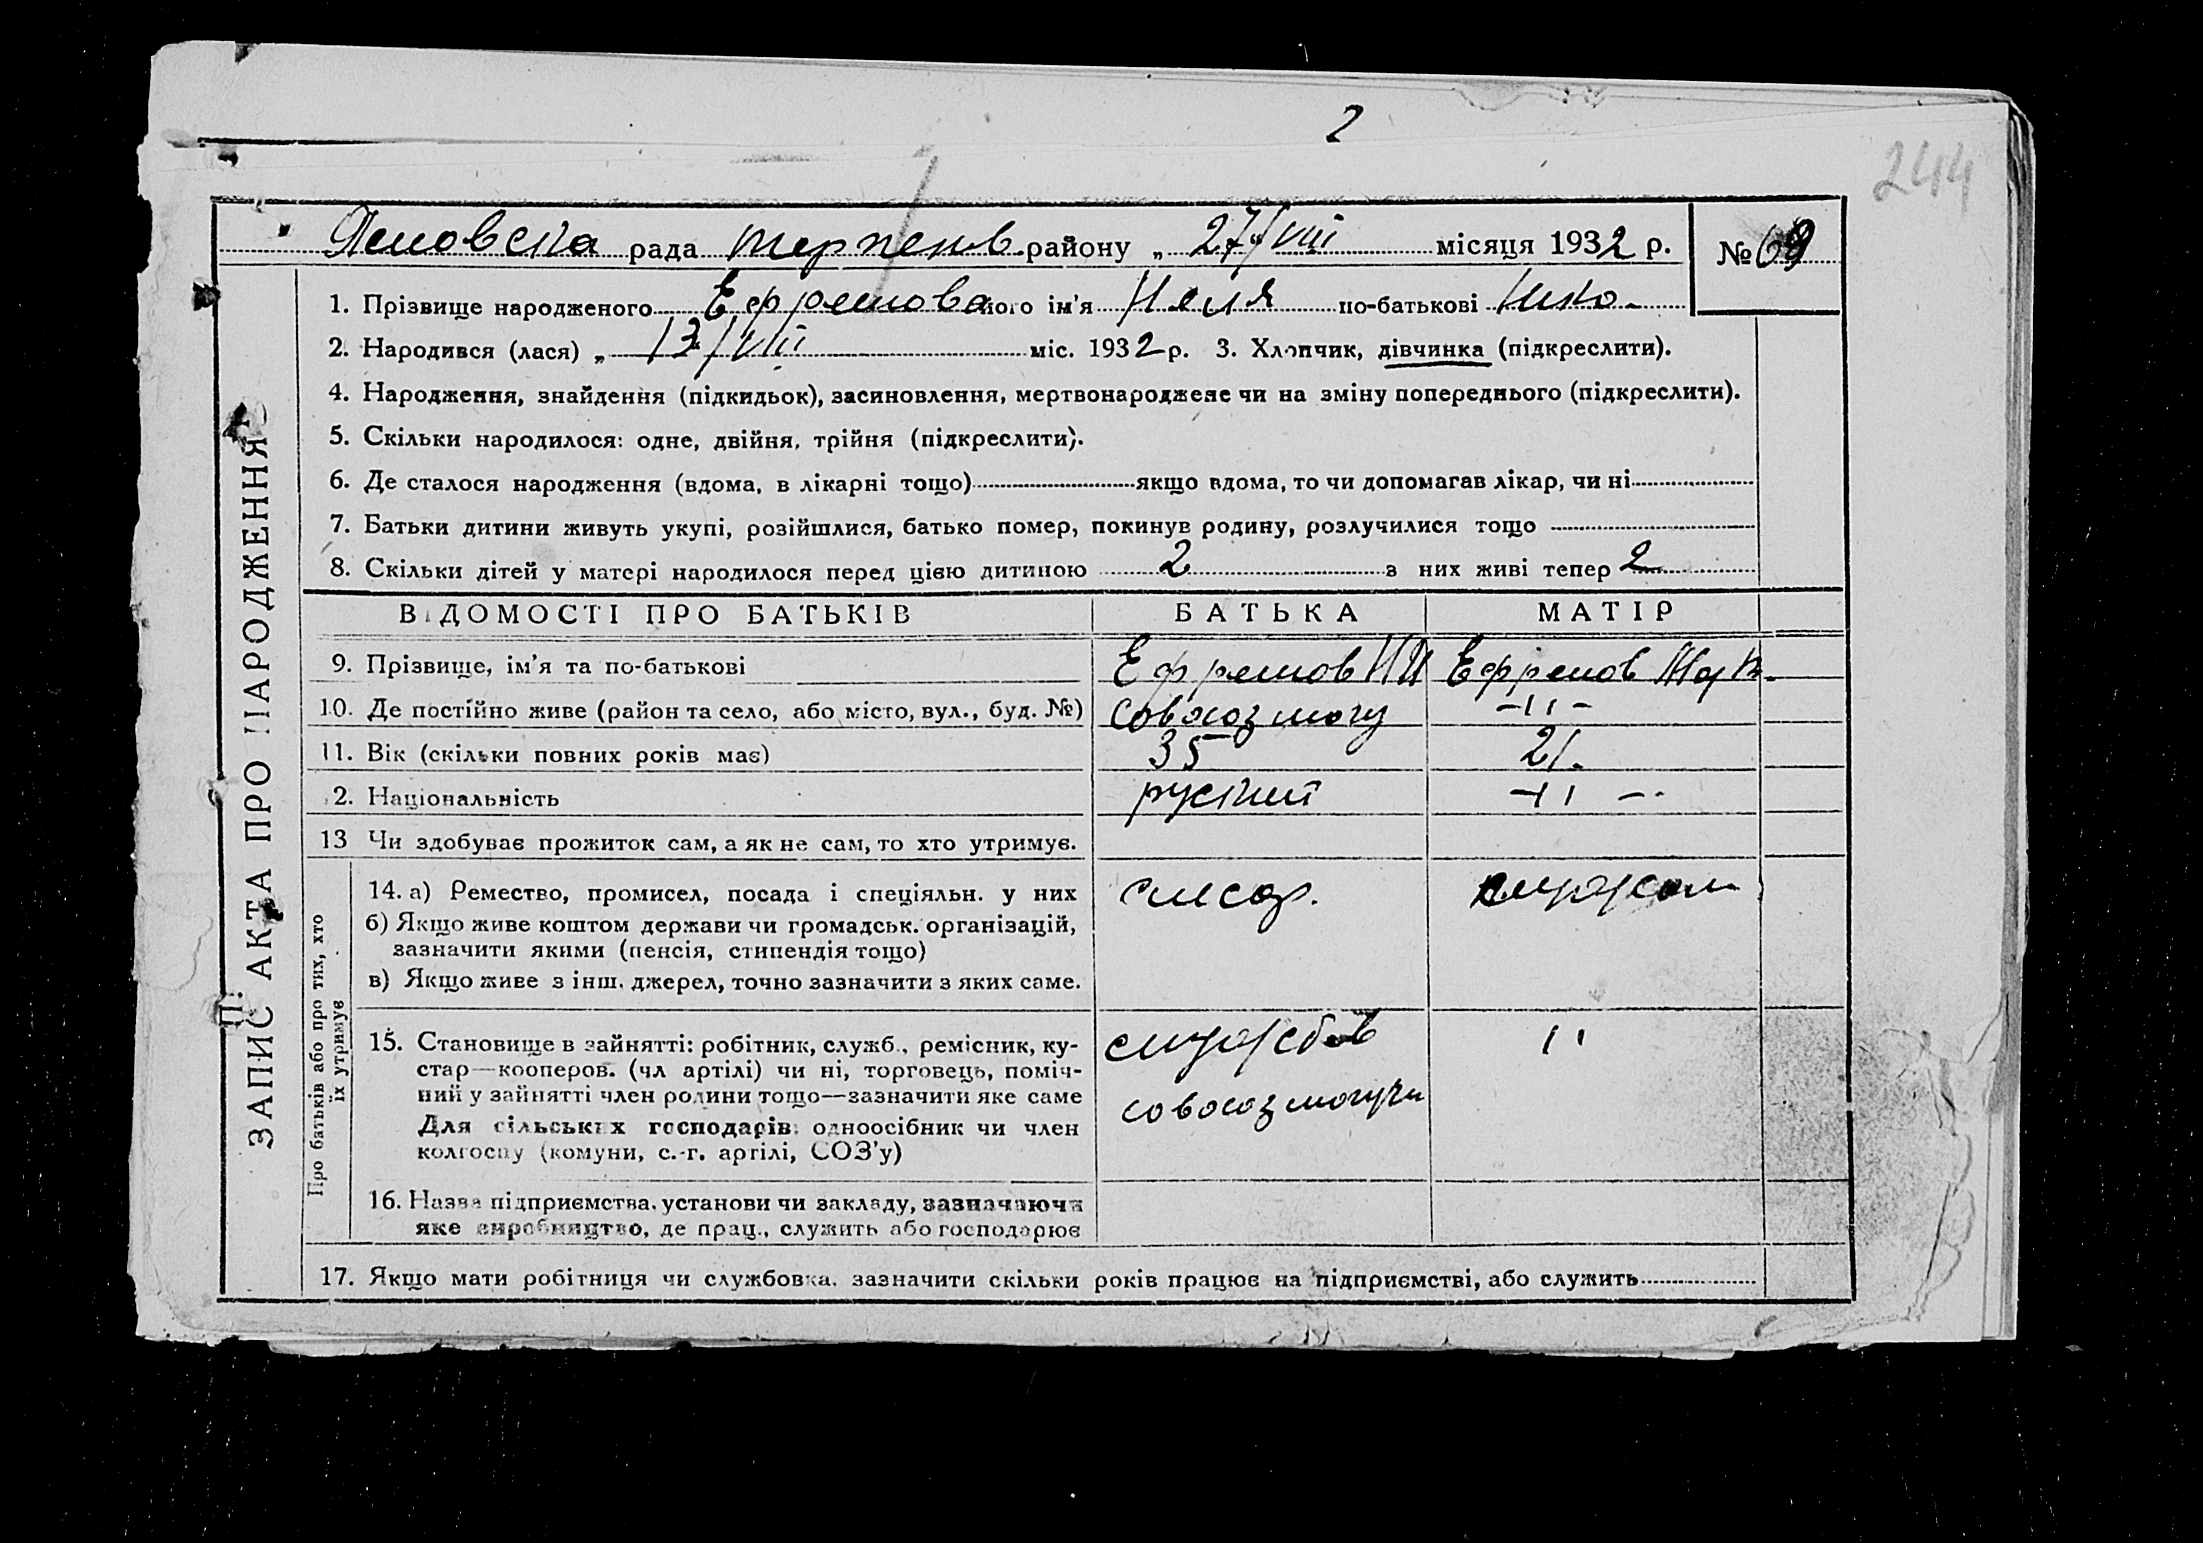 2
244
рада терпенів. району „ 27/VIII місяця 1932 р. № 69
1. Прізвище народженого Ефремова його ім'я Неля по-батькові Нико.
2. Народився (лася) „ 13/VIII міс. 1932 р. 3. Хлопчик, дівчинка (підкреслити).
4. Народження, знайдення (підкидьок), засиновлення, мертвонароджене чи на зміну попереднього (підкреслити).
5. Скільки народилося: одне, двійня, трійня (підкреслити).
6. Де сталося народження (вдома, в лікарні тощо) якщо вдома, то чи допомагав лікар, чи ні
7. Батьки дитини живуть укупі, розійшлися, батько помер, покинув родину, розлучилися тощо
8. Скільки дітей у матері народилося перед цією дитиною 2 з них живі тепер 2
ЗАПИС АКТА ПРО НАРОДЖЕННЯ
ВІДОМОСТІ ПРО БАТЬКІВ БАТЬКА МАТІР
9. Прізвище, ім'я та по-батькові Ефремов Ефремов
10. Де постійно живе (район та село, або місто, вул., буд. №) -11-
11. Вік (скільки повних років має) 35 21.
12. Національність руский -11-
13 Чи здобуває прожиток сам, а як не сам, то хто утримує.
Про батьків або про тих, хто
їх утримує
14. а) Ремество, промисел, посада і спеціяльн. у них слесар.
б) Якщо живе коштом держави чи громадськ. організацій,
зазначити якими (пенсія, стипендія тощо)
в) Якщо живе з інш. джерел, точно зазначити з яких саме.
15. Становище в зайнятті: робітник, служб., ремісник, ку-
стар—кооперов. (чл артілі) чи ні, торговець, поміч-
ний у зайнятті член родини тощо—зазначити яке саме
Для сільських господарів: одноосібник чи член
колгоспу (комуни, с.-г. артілі, СОЗ'у)
11
16. Назва підприємства, установи чи закладу, зазначаючи
яке виробництво, де прац., служить або господарює
17. Якщо мати робітниця чи службовка, зазначити скільки років працює на підприємстві, або служить